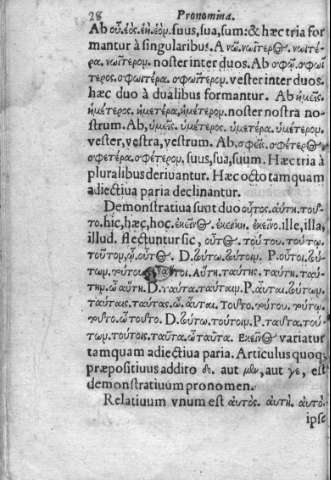 28 Pronomina.
Ab οὗ. ἑός. ἑή. ἑόν. suus, sua, sum: & hæc tria for
mantur à singularibus. A νῶϊ. νωΐτερος. νωϊτέ
ρα. νωΐτερον. noster inter duos. Ab σφῶϊ. σφωΐ
τερος. σφωϊτέρα. σφωΐτερον. vester inter duos.
hæc duo à dualibus formantur. Ab ἡμεῖς.
ἡμέτερος. ἡμετέρα, ἡμέτερον. noster nostra no-
strum. Ab, ὑμεῖς. ὑμέτερος. ὑμετέρα. ὑμέτερον.
vester, vestra, vestrum. Ab. σφεῖς. σφέτερος
σφετέρα. σφέτερον, suus, sua, suum. Hæc tria à
pluralibus deriuantur. Hæc octo tamquam
adiectiua paria declinantur.
Demonstratiua sunt duo οὗτος. αὕτη. τοῦ-
το. hic, hæc, hoc. ἐκεῖνος. ἐκείνη. ἐκεῖνο. ille, illa,
illud. flectuntur sic, οὗτος. τούτου. τούτῳ.
τοῦτον, ὦ. οὗτος. D. τούτω. τούτοιν. P. οὗτοι. τού-
των. τούτοις. Αὕτη. ταύτης. ταύτῃ. ταύ-
την. ὦ αὕτη. D. ταύτα. ταύταιν. P. αὗται. τούτων.
ταύταις. ταύτας. ὦ. αὗται. Τοῦτο. τούτου. τούτῳ.
τοῦτο. ὦ τοῦτο. D. τούτω. τούτοιν. P. ταῦτα. τού-
των. τούτοις. ταῦτα. ὦ ταῦτα. Εκεῖνος variatur
tamquam adiectiua paria. Articulus quoq;
præpositiuus addito δε. aut μὲν, aut γε, est
demonstratiuum pronomen.
Relatiuum vnum est αὐτός. αὐτή. αὐτό.
ipse